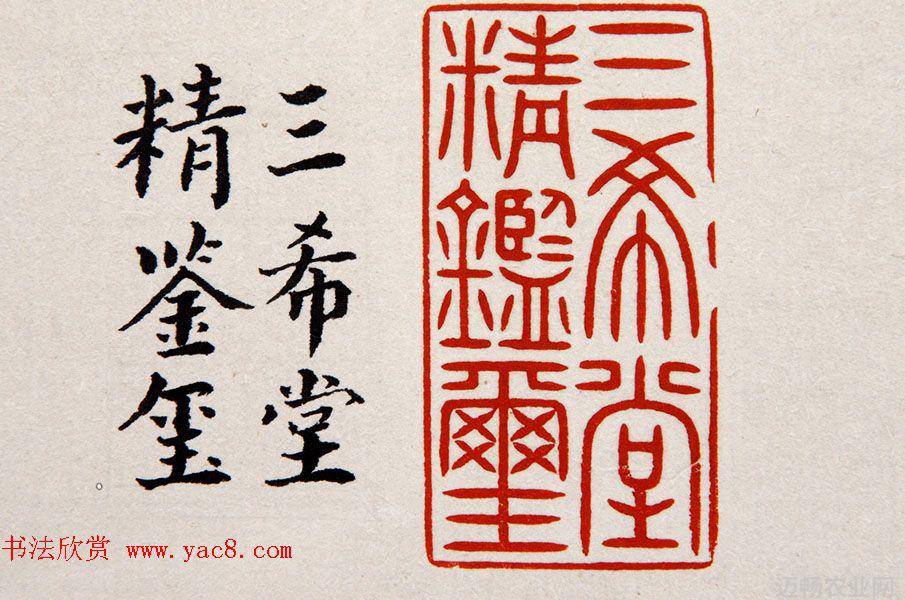 三希堂
精鑑璽
三希堂
精鉴玺
书法欣赏 www.yac8.com
迈畅农业网